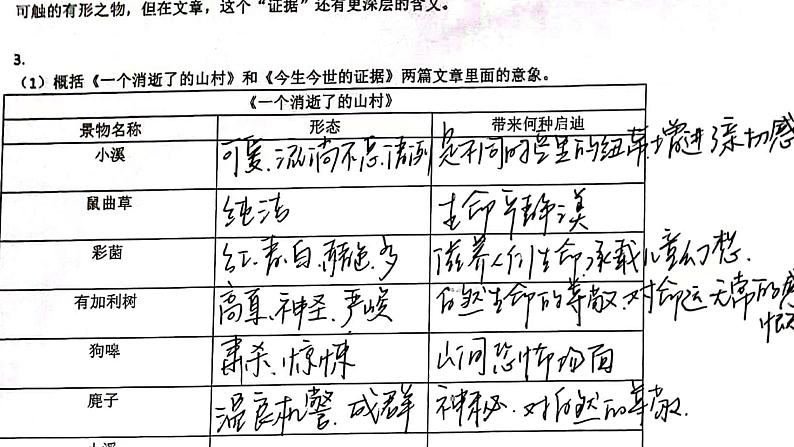 可触的有形之物，但在文章，这个“证据”还有更深层的含义。
3.
（1）概括《一个消逝了的山村》和《今生今世的证据》两篇文章里面的意象。
《一个消逝了的山村》
景物名称 形态 带来何种启迪
小溪 可爱、流淌不息、清冽 是不同时空里的纽带，增进了亲切感
鼠曲草 纯洁 生命
彩菌 红、青、白 多 滋养人们生命，承载儿童幻想．
有加利树 高耸、神圣、严峻 自然生命的尊敬．对命运无常的感
慨
狗嗥 肃杀、惊悚 山间恐怖场面
鹿子 温良机警、成群 神秘．对自然的尊敬．
小溪